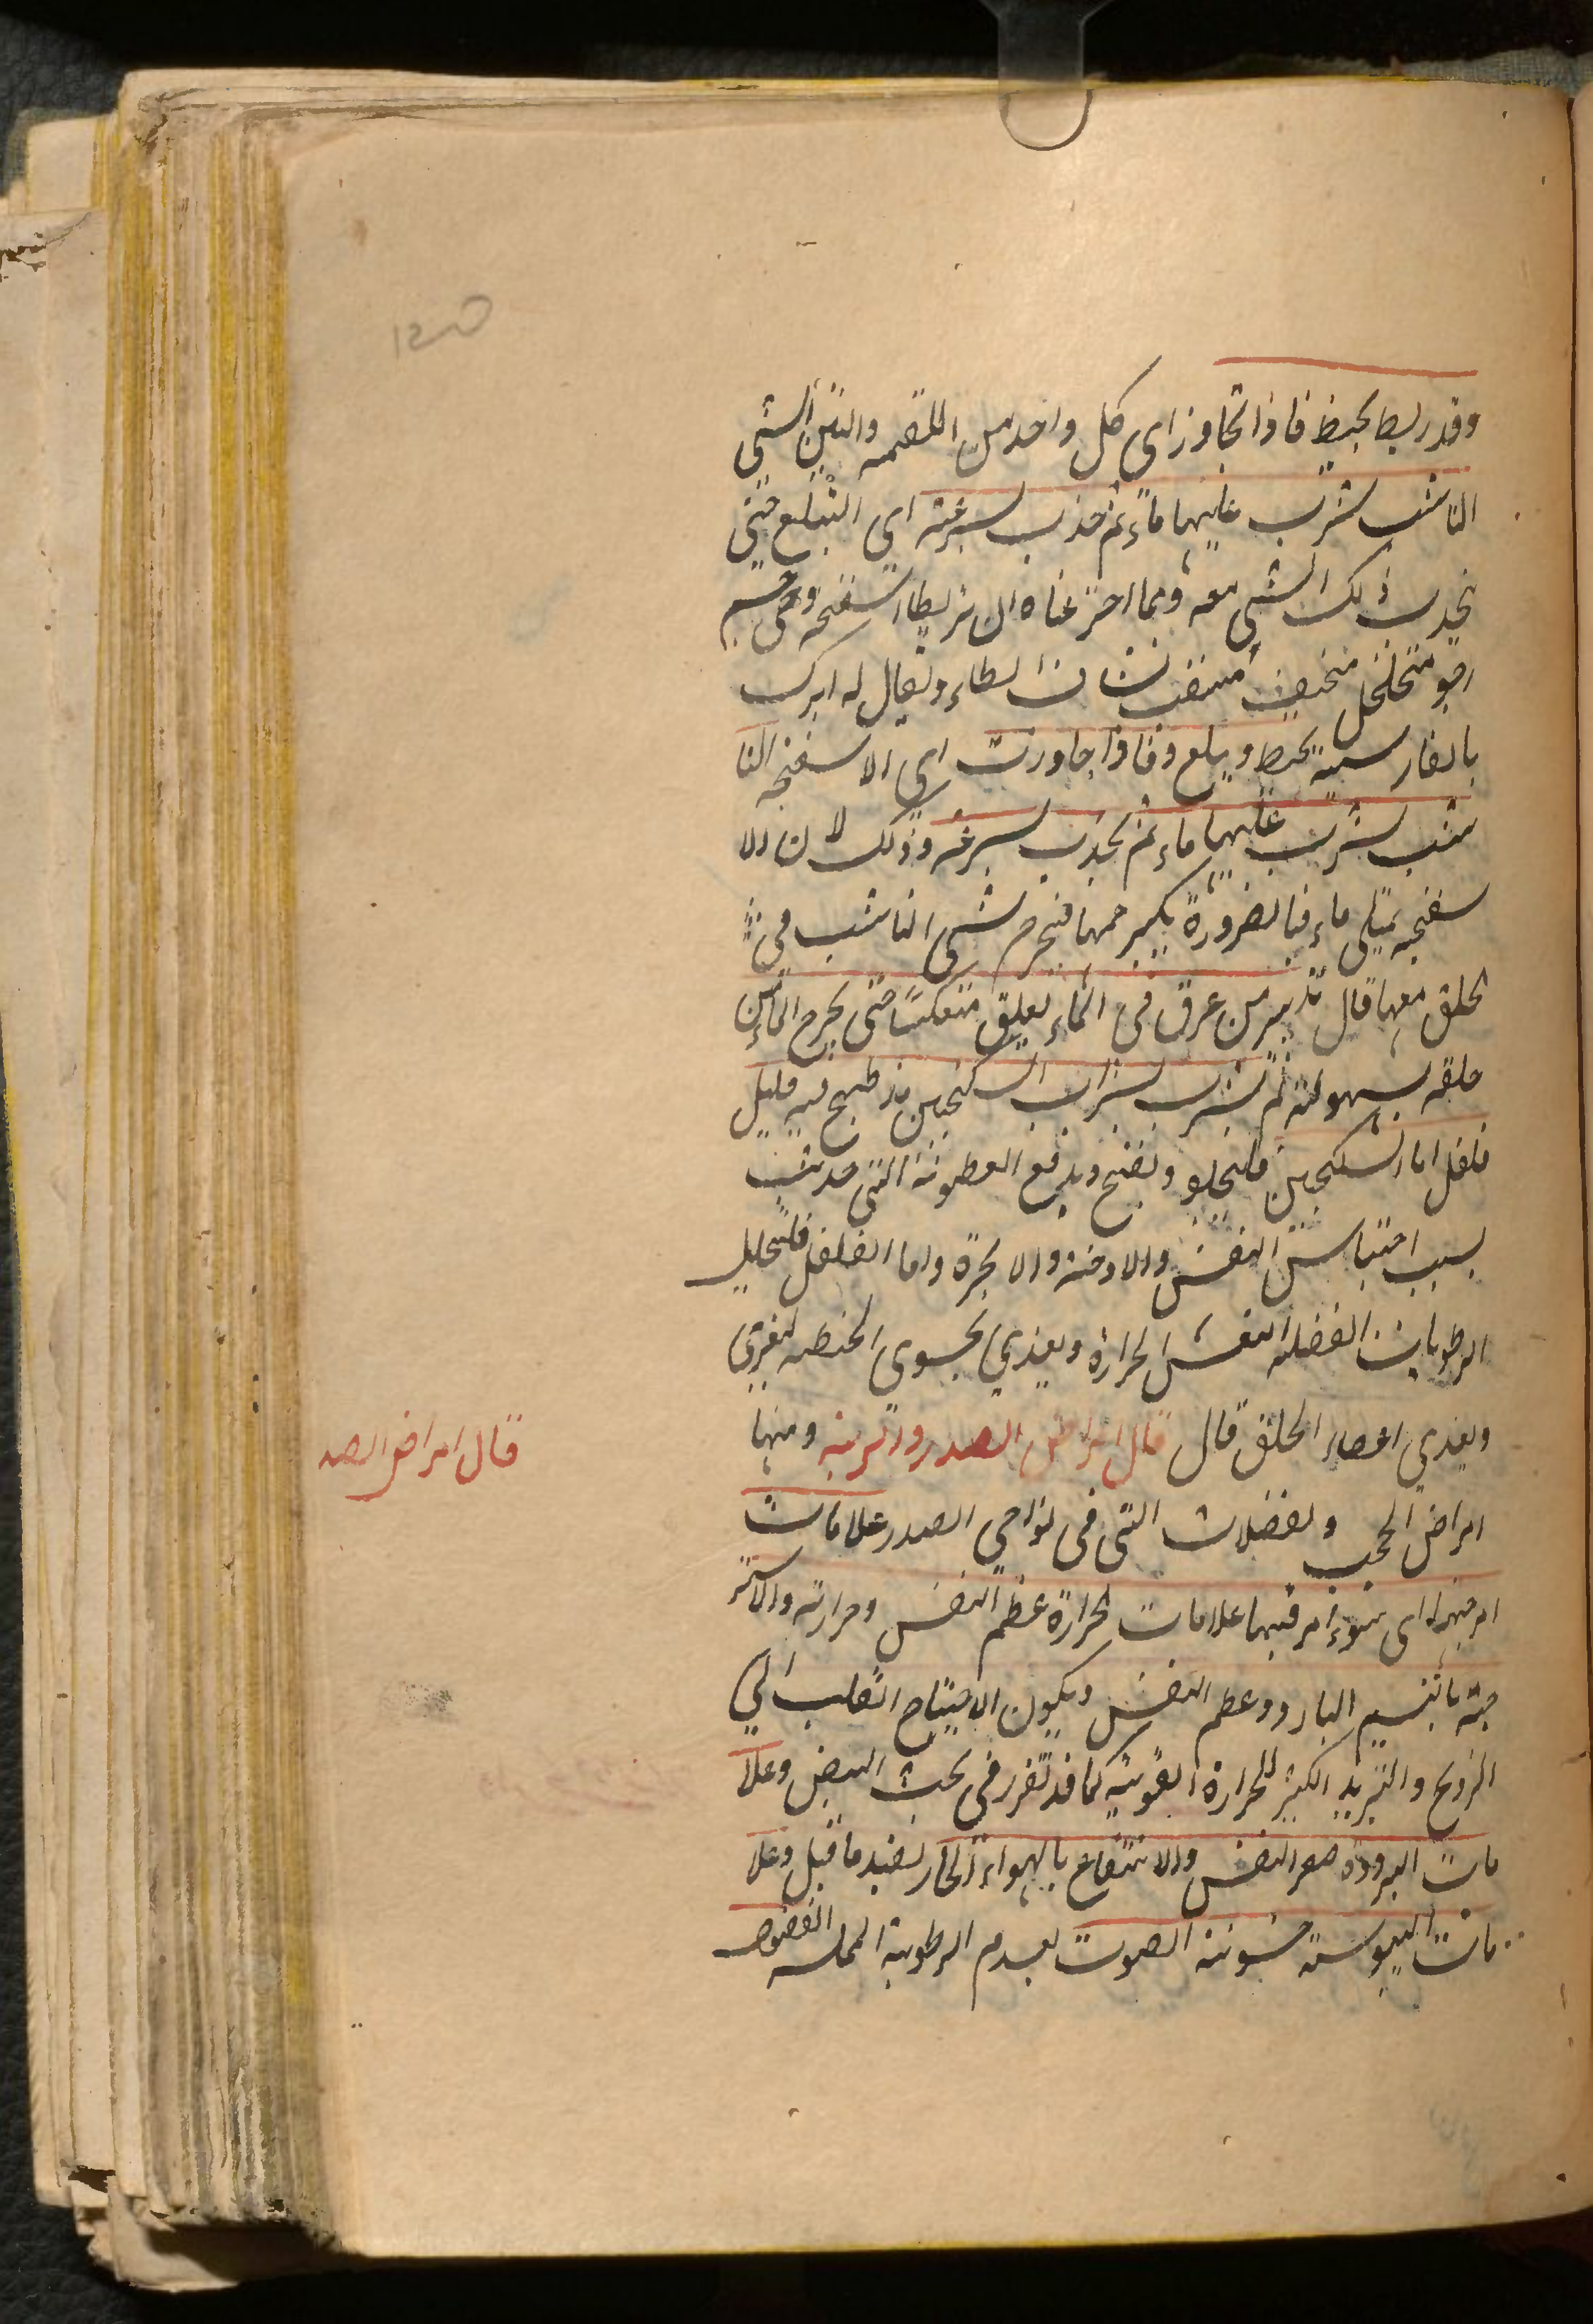 وقد ربط بخيط فاذا تجاوز اى كل واحد من اللقمه والتين الشى
الناشب شرب عليها ماء ثم جذب بسرعة اي التبلع حتى
يجذب ذلك الشى معه ومما اخترعناه ان يربط اسفنجه وهى جسم
رخو متخلخل لسطاء ويقال له ابرك
بالفارسية بخيط ويبلع وفاذا جاوزت اى الاسفنجه النا
شب شرب عليها ماء ثم يجذب بسرعة وذلك لان الا
سفنجه يمتلى ماء فبالضرورة يكبر حجمها فيخرج شى الناشب فى
الحلق معها قال تدبير من غرق فى الماء يعلق منعكسًا حتى يخرج الماء من
حلقه بسهولة ثم يشرب شراب السكنجبين قد طبخ فيه قليل
فلفل اما السكنجبين فليجلو ويفتح ويدفع العطونة التى حدثت
بسبب احتباس النفس والادخنة والابخرة واما الفلفل فلتحليل
الرطوبات الفضلية الحرارة ويغذي بحسوى الحنطه ليغري
ويغذي اعضاء الحلق قال قال امراض الصدر والرية ومنها
امراض الحجب ولفضلات التى فى نواحى الصدر علامات
امزجتها اى سوء امزجتها علامات الحرارة عظم النفس وحرارته والاستر
حة بالنسيم البارد وعظم النفس ويكون الاحتياج القلب الى
الترويح والتبريد الكثير للحرارة القوية كما قد تقرر فى بحث النبض وعلا
مات البرودة صغر النفس والانتفاع بالهواء الحار لضد ما قبل وعلا
مات اليبوسة خشونة الصوت لعدم الرطوبة المملسه الغضو
قال امراض الصد